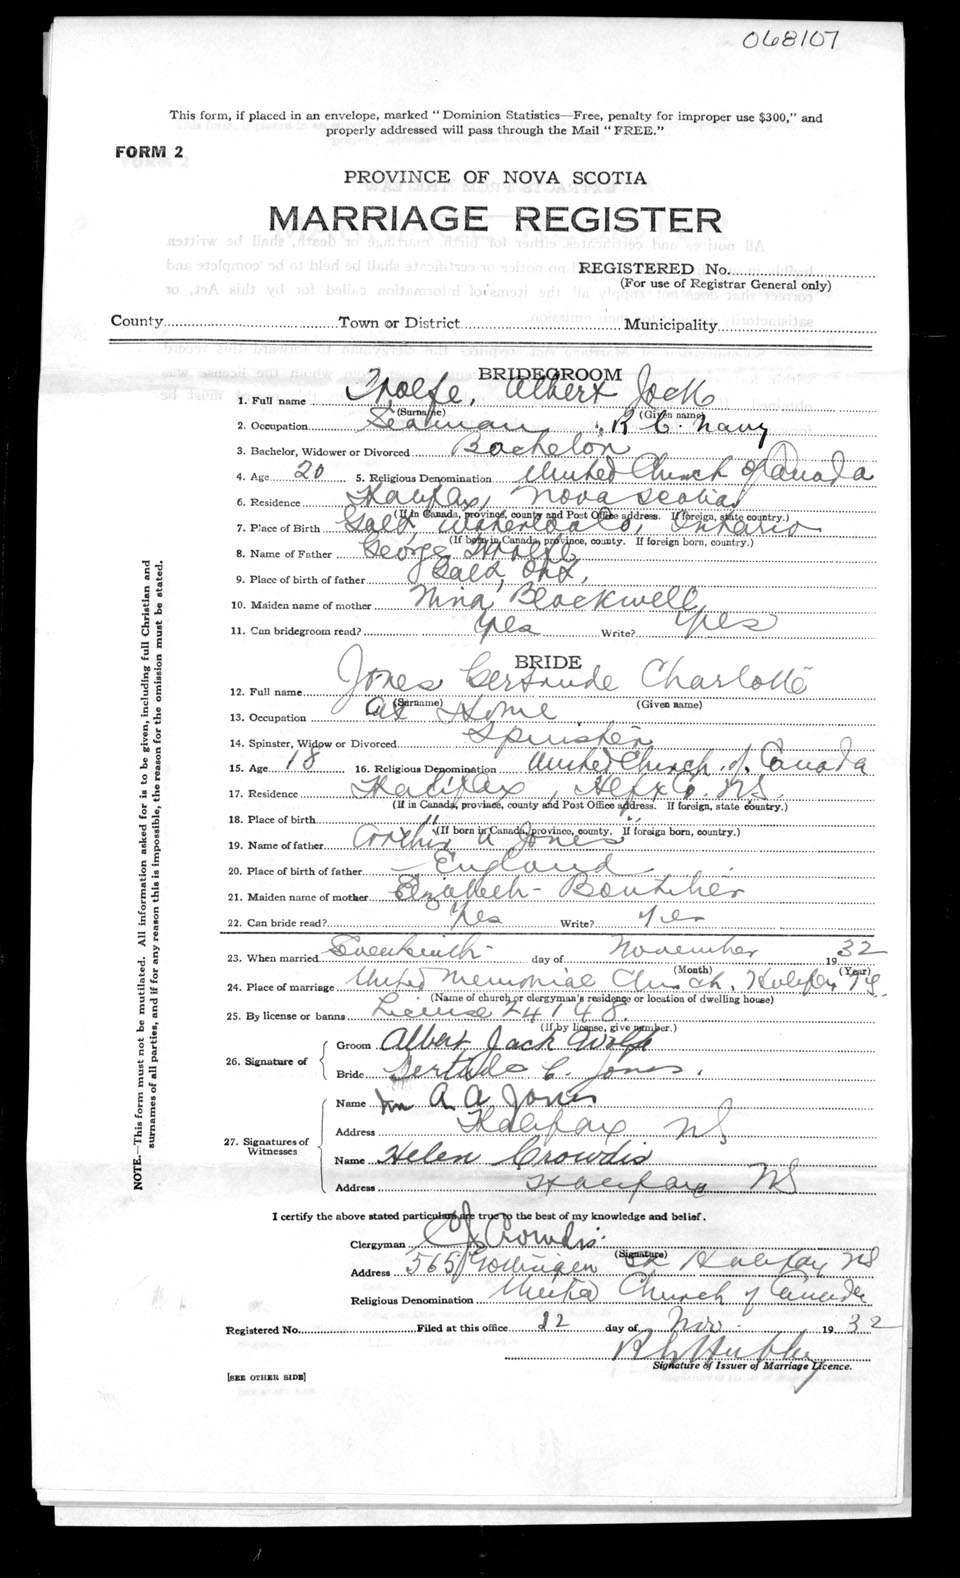 068107
This form, if placed in an envelope, marked "Dominion Statistics—Free, penalty for improper use $300," and
properly addressed will pass through the Mail "FREE."
FORM 2
PROVINCE OF NOVA SCOTIA
MARRIAGE REGISTER
REGISTERED No.
(For use of Registrar General only)
County Town or District Municipality
BRIDEGROOM
1. Full name Wolfe, Albert Jack
(Surname) (Given name)
2. Occupation Seaman, R. C. Navy
3. Bachelor, Widower or Divorced Bachelor
4. Age 20 5. Religious Denomination United Church of Canada
6. Residence Halifax, Nova Scotia
(If in Canada, province, county and Post Office address. If foreign, state country.)
7. Place of Birth Galt, Waterloo Co, Ontario
(If born in Canada, province, county. If foreign born, country.)
8. Name of Father George Wolfe
9. Place of birth of father Galt, Ont,
10. Maiden name of mother Nina Blackwell
11. Can bridegroom read? Yes Write? Yes
BRIDE
12. Full name Jones Gertrude Charlotte
(Surname) (Given name)
13. Occupation At Home
14. Spinster, Widow or Divorced Spinster
15. Age 18 16. Religious Denomination United Church of Canada
17. Residence Halifax, Hfx Co. N.S.
(If in Canada, province, county and Post Office address. If foreign, state country.)
18. Place of birth " " "
(If born in Canada, province, county. If foreign born, country.)
19. Name of father Arthur A Jones
20. Place of birth of father England
21. Maiden name of mother Elizabeth Boutilier
22. Can bride read? Yes Write? Yes
23. When married Seventeenth day of November 1932
(Month) (Year)
24. Place of marriage United Memorial Church, Halifax NS.
(Name of church or clergyman's residence or location of dwelling house)
25. By license or banns License 24148.
(If by license, give number.)
26. Signature of
Groom Albert Jack Wolfe
Bride Gertrude C. Jones.
27. Signatures of Witnesses
Name A. A Jones
Address Halifax NS
Name Helen Crowdis
Address Halifax NS
I certify the above stated particulars are true to the best of my knowledge and belief.
Clergyman C J Crowdis
(Signature)
Address 565 Gottingen St Halifax NS
Religious Denomination United Church of Canada
Registered No. Filed at this office 22 day of Nov. 1932
Signature of Issuer of Marriage Licence.
[SEE OTHER SIDE]
NOTE.—This form must not be mutilated. All information asked for is to be given, including full Christian and
surnames of all parties, and if for any reason this is impossible, the reason for the omission must be stated.